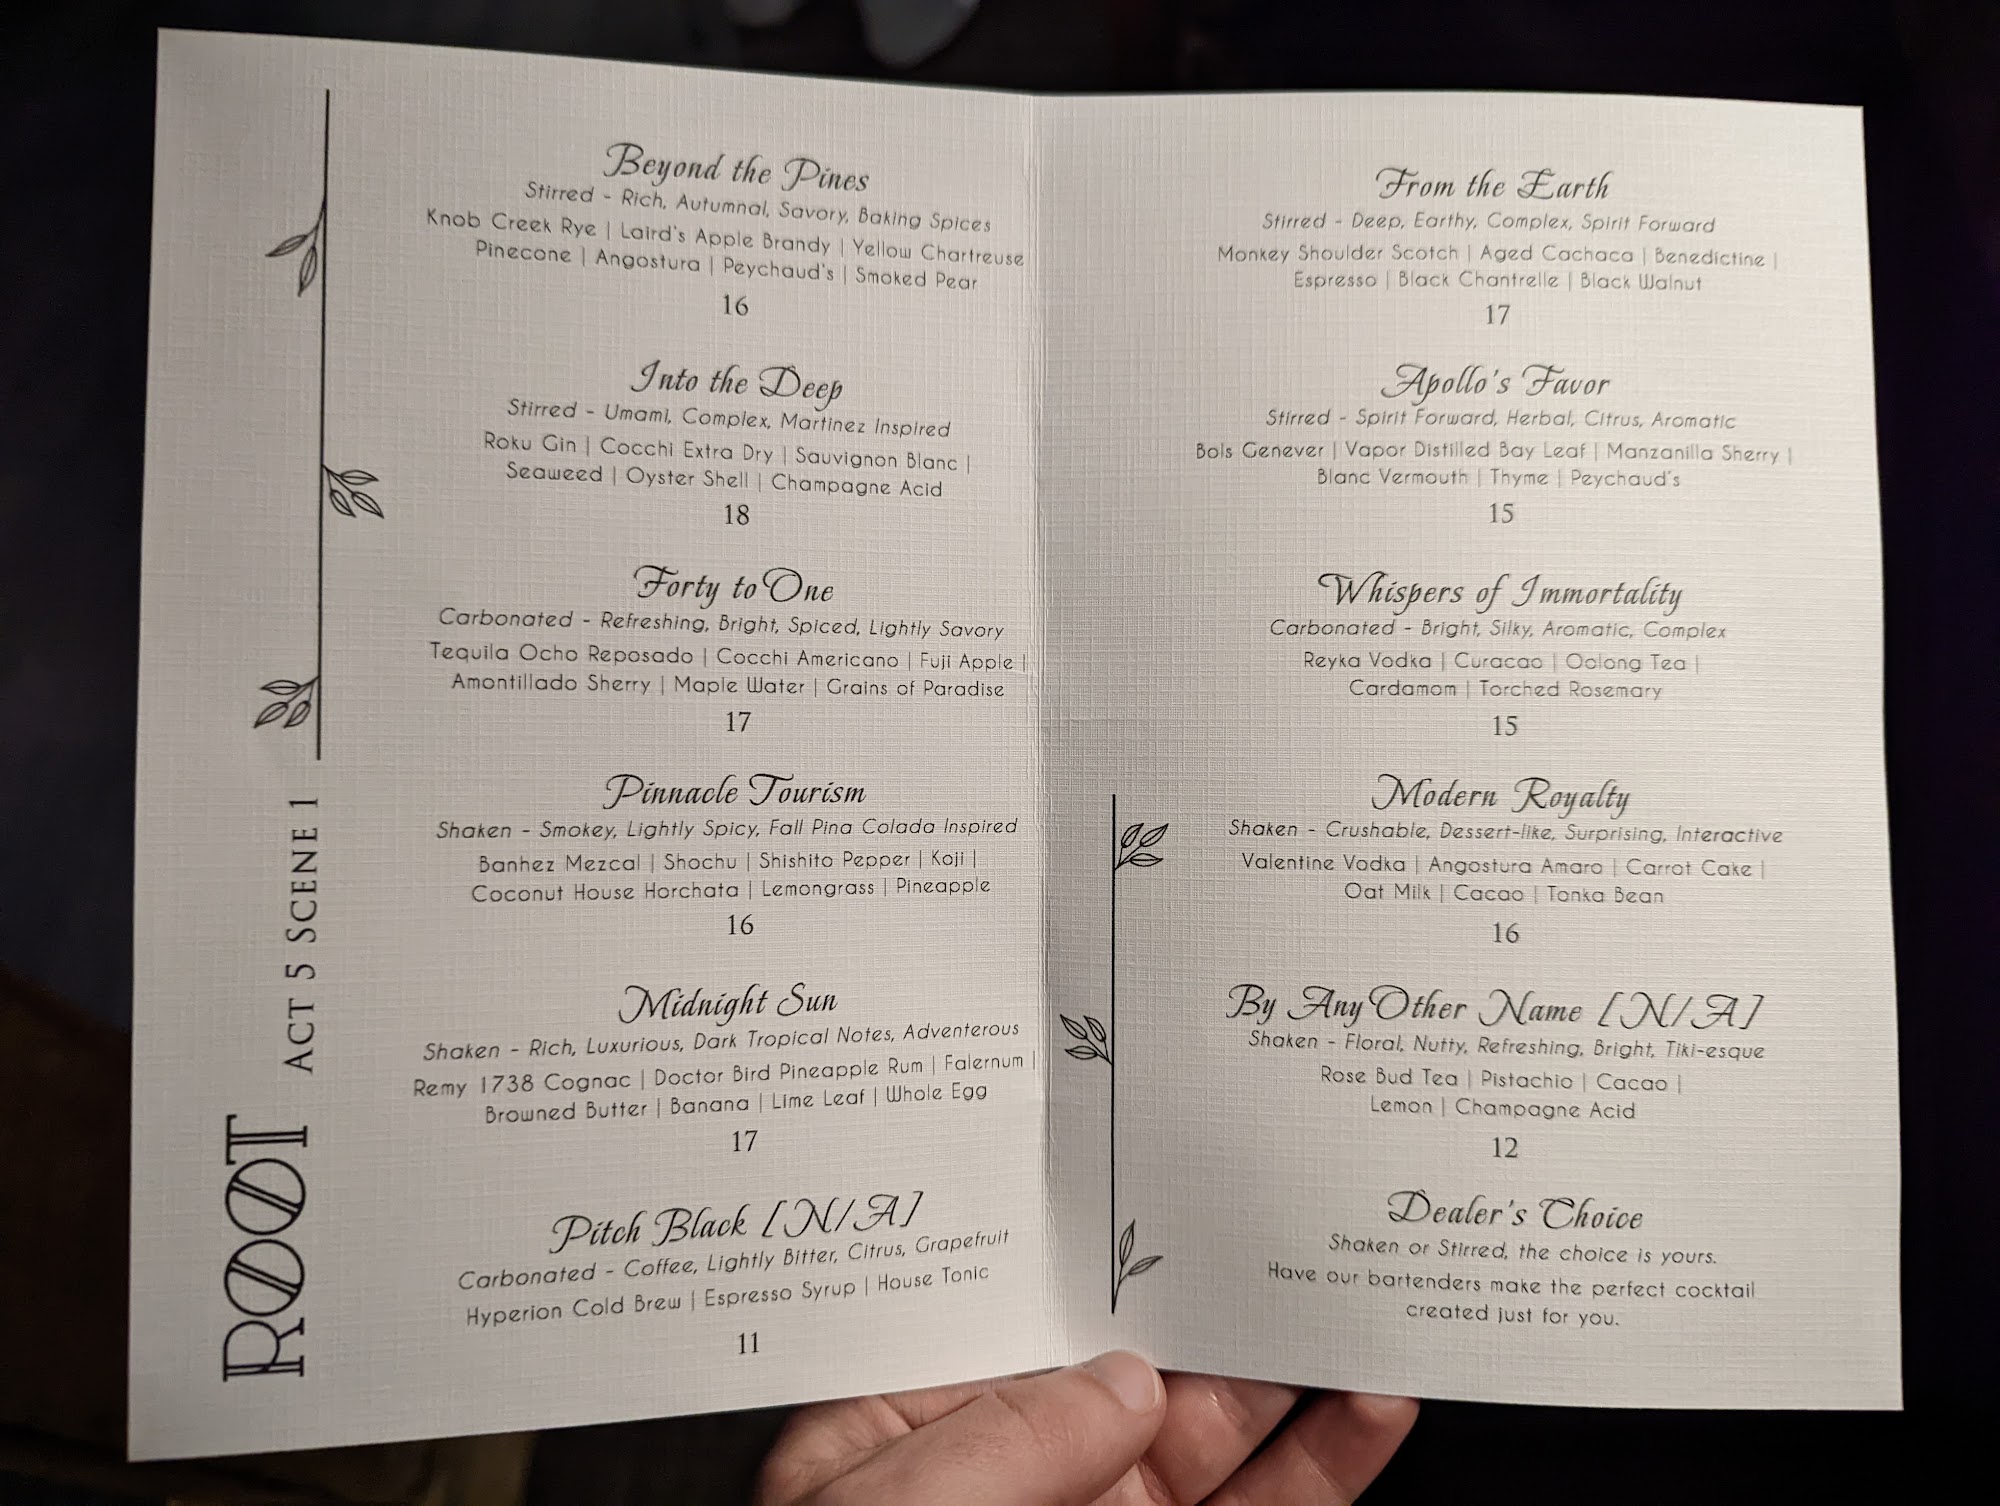 ROOT
ACT 5 SCENE 1
Beyond the Pines
Stirred - Rich, Autumnal, Savory, Baking Spices
Knob Creek Rye | Laird's Apple Brandy | Yellow Chartreuse
Pinecone | Angostura | Peychaud's | Smoked Pear
16
Into the Deep
Stirred - Umami, Complex, Martinez Inspired
Roku Gin | Cocchi Extra Dry | Sauvignon Blanc |
Seaweed | Oyster Shell | Champagne Acid
18
Forty to One
Carbonated - Refreshing, Bright, Spiced, Lightly Savory
Tequila Ocho Reposado | Cocchi Americano | Fuji Apple |
Amontillado Sherry | Maple Water | Grains of Paradise
17
Pinnacle Tourism
Shaken - Smokey, Lightly Spicy, Fall Pina Colada Inspired
Banhez Mezcal | Shochu | Shishito Pepper | Koji |
Coconut House Horchata | Lemongrass | Pineapple
16
Midnight Sun
Shaken - Rich, Luxurious, Dark Tropical Notes, Adventerous
Remy 1738 Cognac | Doctor Bird Pineapple Rum | Falernum |
Browned Butter | Banana | Lime Leaf | Whole Egg
17
Pitch Black [N/A]
Carbonated - Coffee, Lightly Bitter, Citrus, Grapefruit
Hyperion Cold Brew | Espresso Syrup | House Tonic
11
From the Earth
Stirred - Deep, Earthy, Complex, Spirit Forward
Monkey Shoulder Scotch | Aged Cachaca | Benedictine |
Espresso | Black Chantrelle | Black Walnut
17
Apollo's Favor
Stirred - Spirit Forward, Herbal, Citrus, Aromatic
Bols Genever | Vapor Distilled Bay Leaf | Manzanilla Sherry |
Blanc Vermouth | Thyme | Peychaud's
15
Whispers of Immortality
Carbonated - Bright, Silky, Aromatic, Complex
Reyka Vodka | Curacao | Oolong Tea |
Cardamom | Torched Rosemary
15
Modern Royalty
Shaken - Crushable, Dessert-like, Surprising, Interactive
Valentine Vodka | Angostura Amaro | Carrot Cake |
Oat Milk | Cacao | Tonka Bean
16
By Any Other Name [N/A]
Shaken - Floral, Nutty, Refreshing, Bright, Tiki-esque
Rose Bud Tea | Pistachio | Cacao |
Lemon | Champagne Acid
12
Dealer's Choice
Shaken or Stirred, the choice is yours.
Have our bartenders make the perfect cocktail
created just for you.